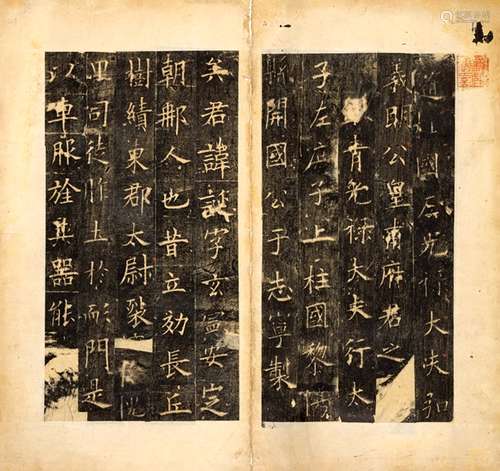 柱國左光祿大夫弘
義明公皇甫府君之
青光祿大夫行太
子左庶子上柱國黎陽
縣開國公于志寧製
矣君諱誕字玄憲安定
朝那人也昔立効長丘
樹績東郡太尉裂槐
里司徒胙土於耏門是
以車服旌其器能